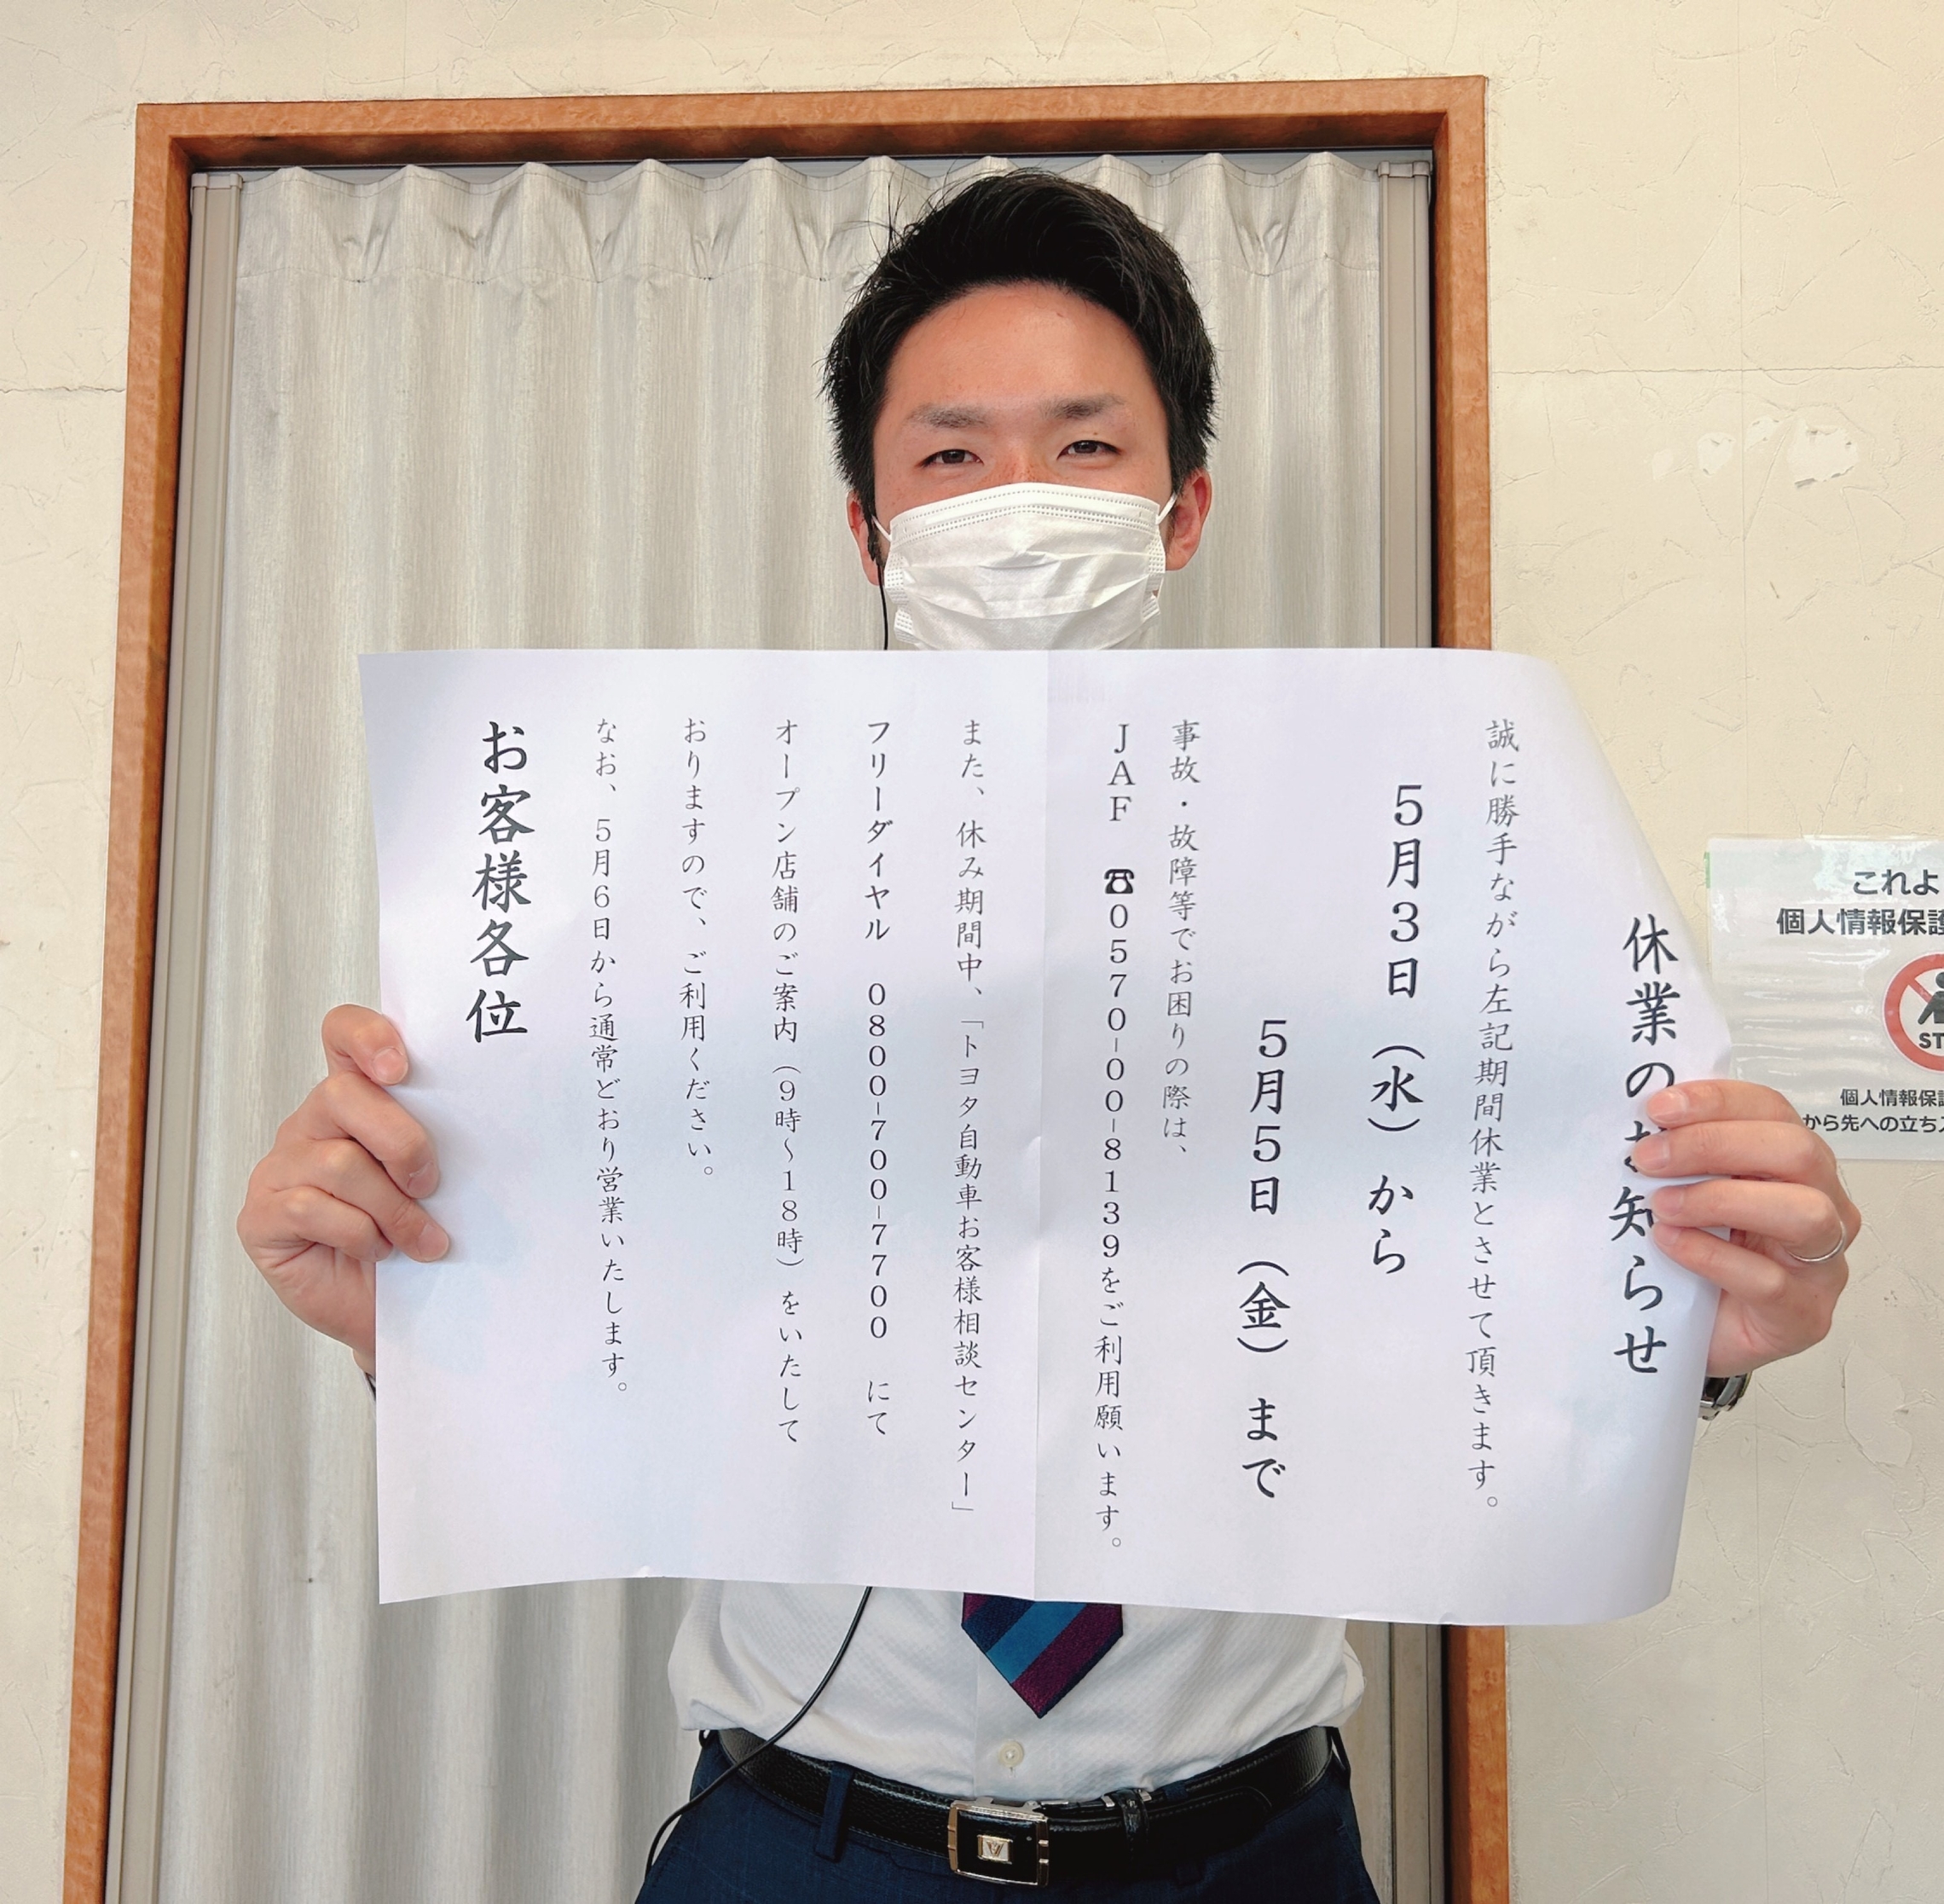 休業のお知らせ
誠に勝手ながら左記期間休業とさせて頂きます。
５月３日（水）から
５月５日（金）まで
事故・故障等でお困りの際は、
ＪＡＦ　☎０５７０-００-８１３９をご利用願います。
また、休み期間中、「トヨタ自動車お客様相談センター」
フリーダイヤル　０８００-７００-７７００　にて
オープン店舗のご案内（９時～１８時）をいたして
おりますので、ご利用ください。
なお、５月６日から通常どおり営業いたします。
お客様各位
これよ
個人情報保護
ST
個人情報保護
から先への立ち入